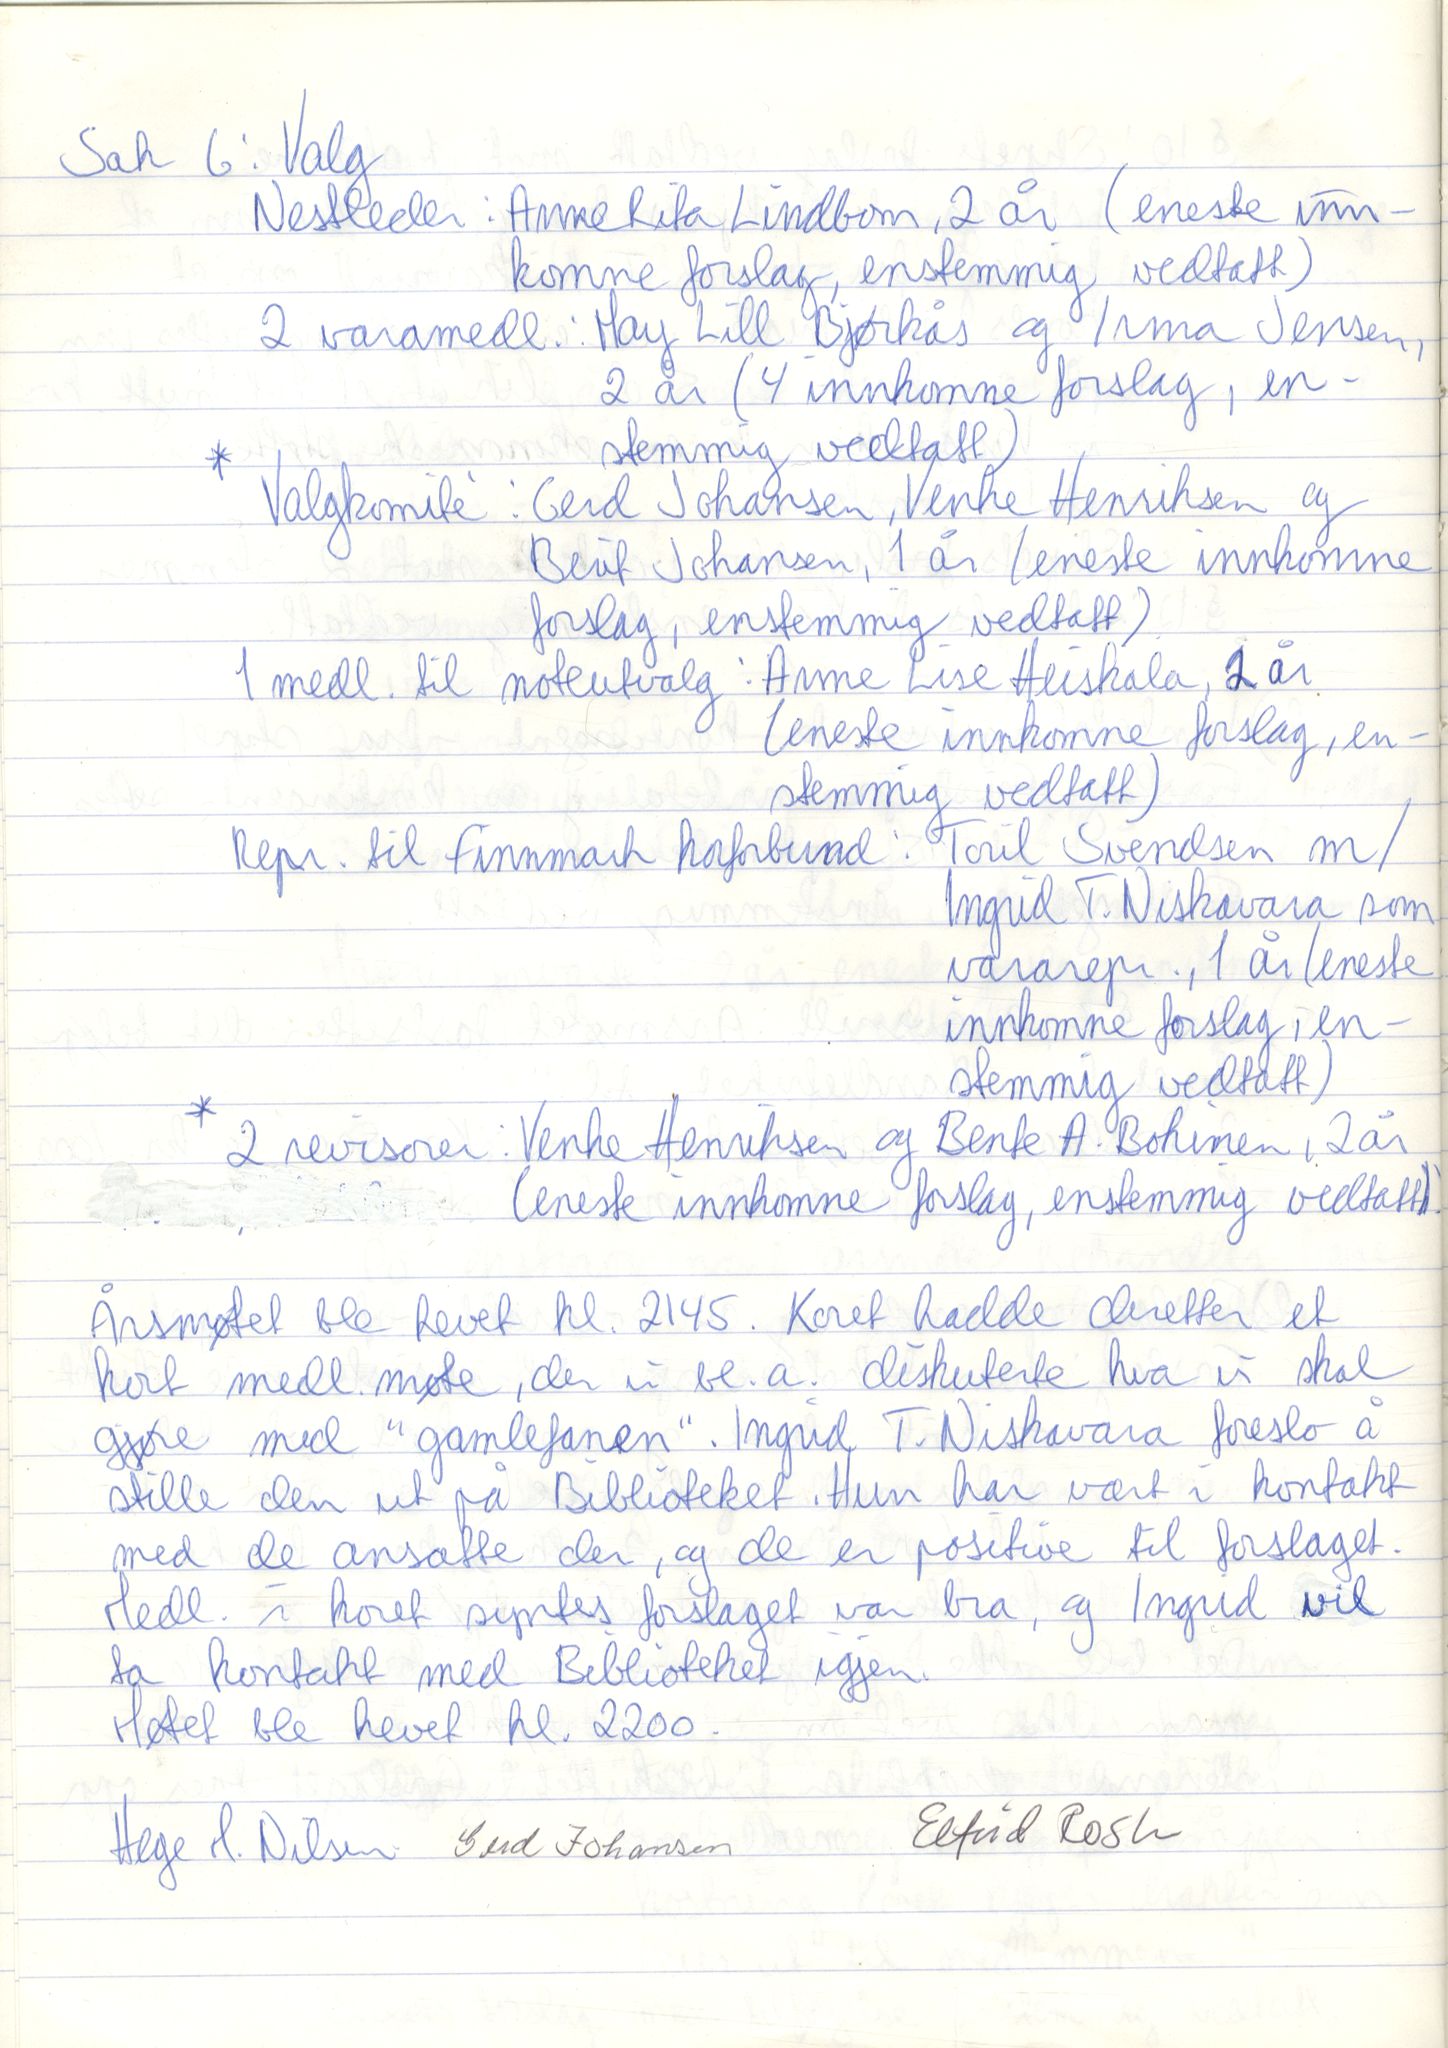 Sak 6: Valg
Nestleder: Anne Rita Lindbom, 2 år (eneste inn-
komne forslag, enstemmig vedtatt)
2 varamedl.: May Lill Bjørkås og Irma Jensen,
2 år (4 innkomne forslag, en-
stemmig vedtatt)
* Valgkomité: Gerd Johansen, Venke Henriksen og
Berit Johansen, 1 år (eneste innkomne
forslag, enstemmig vedtatt)
1 medl. til noteutvalg: Anne Lise Heiskala, 2 år
(eneste innkomne forslag, en-
stemmig vedtatt)
Repr. til Finnmark korforbund: Toril Svendsen m/
Ingrid T. Niskavara som
vararepr., 1 år (eneste
innkomne forslag, en-
stemmig vedtatt)
* 2 revisorer: Venke Henriksen og Bente A. Bohinen, 2 år
(eneste innkomne forslag, enstemmig vedtatt).
Årsmøtet ble hevet kl. 2145. Koret hadde deretter et
kort medl. møte, der vi bl. a. diskuterte hva vi skal
gjøre med "gamlefanen". Ingrid T. Niskavara foreslo å
stille den ut på Biblioteket. Hun har vært i kontakt
med de ansatte der, og de er positive til forslaget.
Medl. i koret syntes forslaget var bra, og Ingrid vil
ta kontakt med Biblioteket igjen.
Møtet ble hevet kl. 2200.
Hege M. Nilsen Gerd Johansen Elfrid Rosk